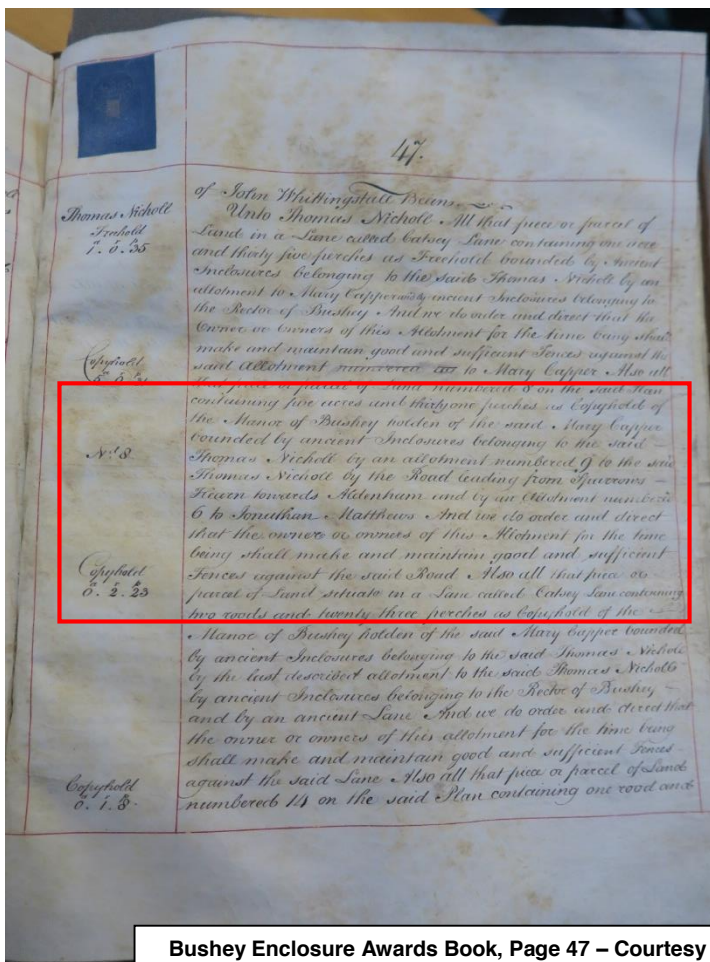 47.
of John Whittingstall Beams
Thomas Nicholl
Freehold
1. 0. 35
Unto Thomas Nicholl All that piece or parcel of
Land in a Lane called Catsey Lane containing one acre
and thirty five perches as Freehold bounded by Ancient
Inclosures belonging to the said Thomas Nicholl by an
allotment to Mary Capper and by ancient Inclosures belonging to
the Rector of Bushey And we do order and direct that the
Owner or Owners of this Allotment for the time being shall
make and maintain good and sufficient Fences against the
said Allotment to Mary Capper Also all
Copyhold
that piece or parcel of Land numbered 8 on the said Plan
containing five acres and thirty one perches as Copyhold of
the Manor of Bushey holden of the said Mary Capper
bounded by ancient Inclosures belonging to the said
No. 8
Thomas Nicholl by an allotment numbered 9 to the said
Thomas Nicholl by the Road leading from Sparrows
Hearn towards Aldenham and by an Allotment numbered
6 to Jonathan Matthews And we do order and direct
that the owner or owners of this Allotment for the time
being shall make and maintain good and sufficient
Copyhold
0. 2. 23
Fences against the said Road Also all that piece or
parcel of Land situate in a Lane called Catsey Lane containing
two roods and twenty three perches as Copyhold of the
Manor of Bushey holden of the said Mary Capper bounded
by ancient Inclosures belonging to the said Thomas Nicholl
by the last described allotment to the said Thomas Nicholls
by ancient Inclosures belonging to the Rector of Bushey
and by an ancient Lane And we do order and direct that
the owner or owners of this allotment for the time being
shall make and maintain good and sufficient Fences
Copyhold
0. 1. 8
against the said Lane Also all that piece or parcel of Land
numbered 14 on the said Plan containing one rood and
Bushey Enclosure Awards Book, Page 47 – Courtesy